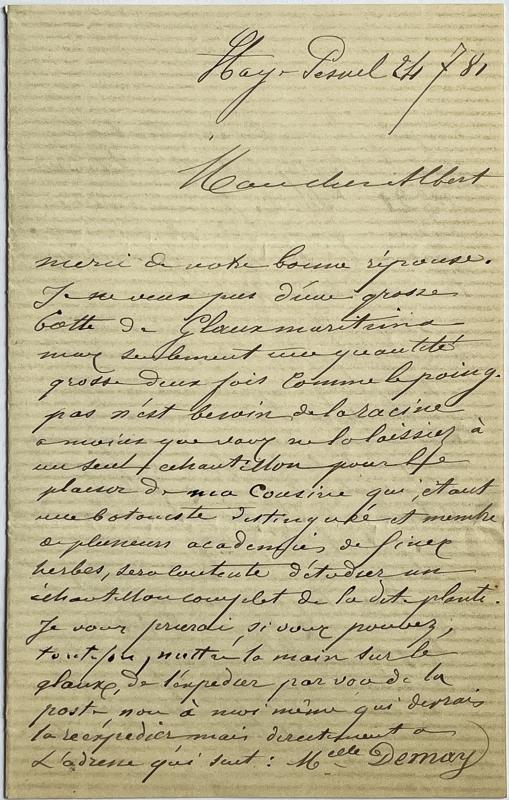 24/7 81
Mon cher Albert
merci de votre bonne réponse.
Je ne veux pas d'une grosse
botte de Glaux maritima
mais seulement une quantité
grosse deux fois comme le poing.
pas n'est besoin de la racine
a moins que vous ne la laissiez à
un seul échantillon pour le
plaisir de ma cousine qui, étant
une botaniste distinguée et membre
de plusieurs academies de fines
herbes, sera contente d'étudier un
échantillon complet de la dite plante.
Je vous prierai, si vous pouvez,
mettre la main sur le
glaux, de l'expedier par voie de la
poste non à moi même qui devrais
la réexpédier mais directement a
L'adresse qui suit : Melle Demay